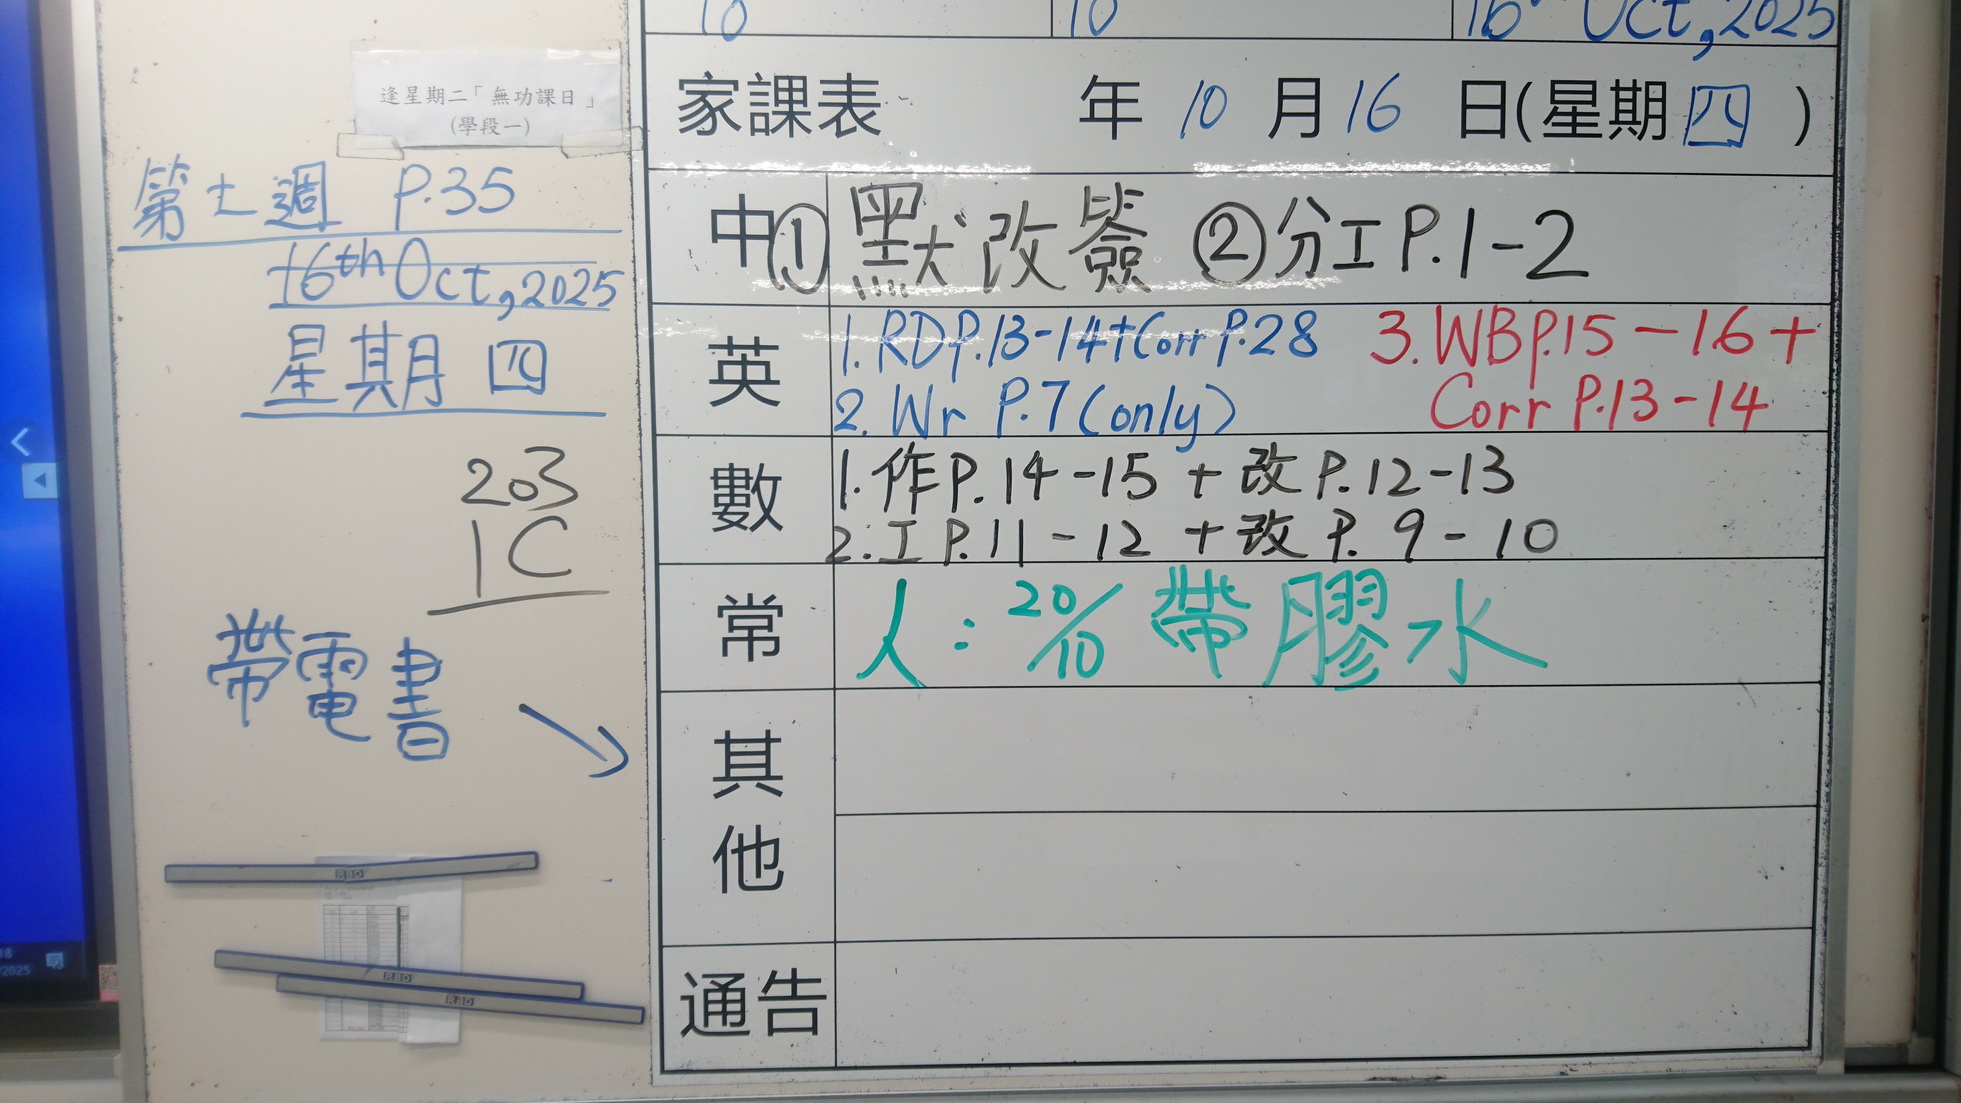 逢星期二「無功課日」
(學段一)
第七週 P.35
16th Oct, 2025
星期四
203
1C
帶電書
10
10
16 Oct, 2025
家課表 年 10 月 16 日(星期四)
中 ① 默改簽 ② 分工 P.1-2
英 1. RD P.13-14+Corr P.28
2. Wr P.7 (only)
3. WB P.15-16+
Corr P.13-14
數 1. 作 P.14-15 + 改 P.12-13
2. 工 P.11-12 + 改 P.9-10
常 人: 20/10 帶膠水
其他
通告